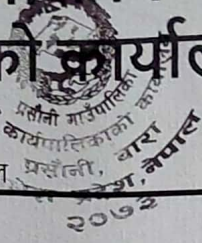 को कार्याल
प्रसौनी गाउँपालिका
कार्यपालिकाको कार्यालय
प्रसौनी, बारा
प्रदेश, नेपाल
२०७३